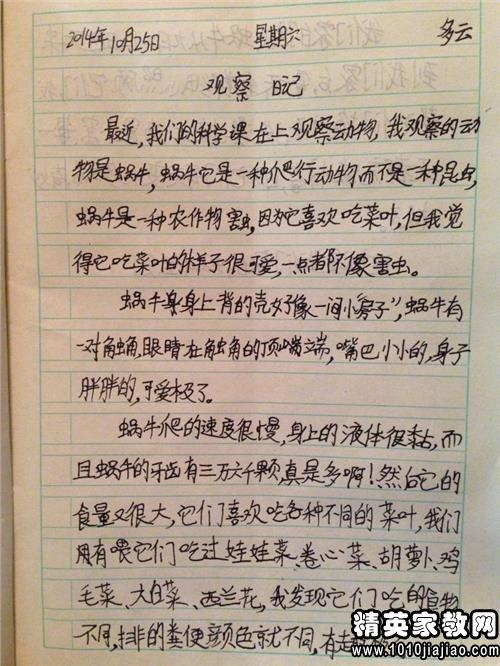 2014年10月25日 星期六 多云
观察 日记
最近,我们的科学课在上观察动物,我观察的动
物是蜗牛,蜗牛它是一种爬行动物而不是一种昆虫,
蜗牛是一种农作物害虫,因为它喜欢吃菜叶,但我觉
得它吃菜叶的样子很可爱,一点都不像害虫。
蜗牛身身上背的壳好像一间小房子”,蜗牛有
一对角触,眼睛在触角的顶端,嘴巴小小的,身子
胖胖的,可爱极了。
蜗牛爬的速度很慢,身上的液体很黏,而
且蜗牛的牙齿有三万六千颗,真是多啊!然后它的
食量又很大,它们喜欢吃各种不同的菜叶,我们
用有喂它们吃过娃娃菜、卷心菜、胡萝卜、鸡
毛菜、大白菜、西兰花,我发现它们吃的植物
不同,排的粪便颜色就不同,有
精英家教网
www.1010jiajiao.com